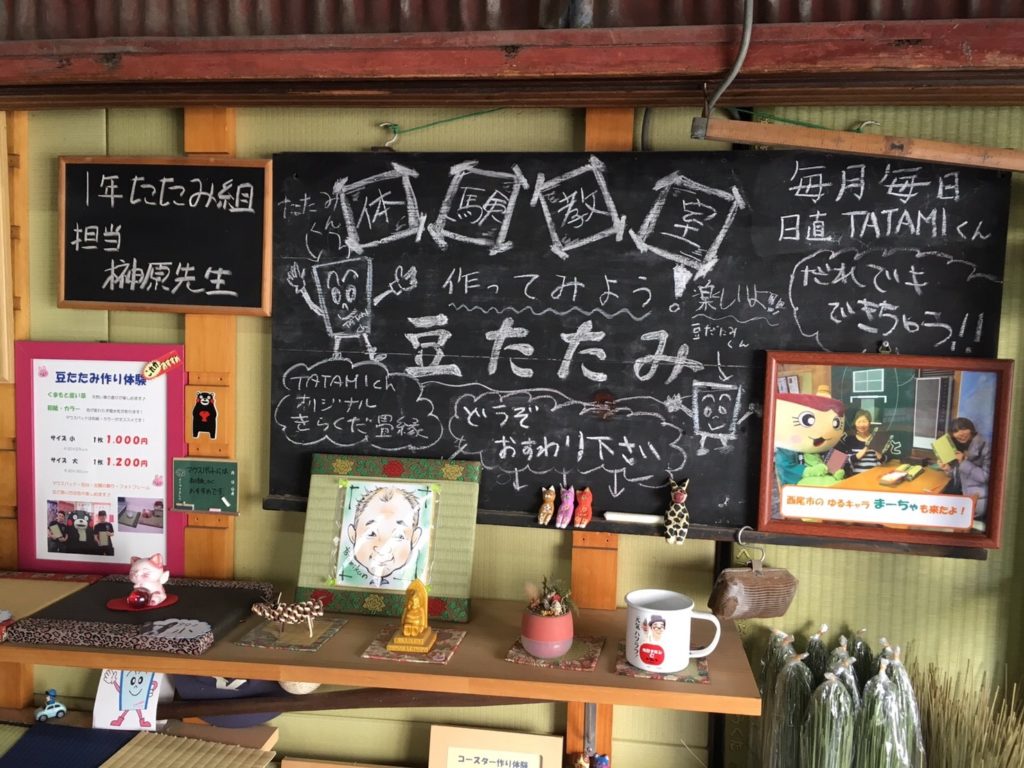 1年たたみ組
担当
榊原先生
たたみ
くん
体験教室
作ってみよう!
豆たたみ
楽しいよ!!
豆だたみ
くん
毎月毎日
日直 TATAMIくん
だれでも
できちゃう!!
TATAMIch
オリジナル
きらくだ畳縁
どうぞ
おすわり下さい
豆たたみ作り体験
くまもと産い草
和紙・カラー
サイズ 小 1枚 1,000円
サイズ 大 1枚 1,200円
マウスパットには
和紙が
おすすめです
西尾市の ゆるキャラ まーちゃも来たよ!
コースター作り体験